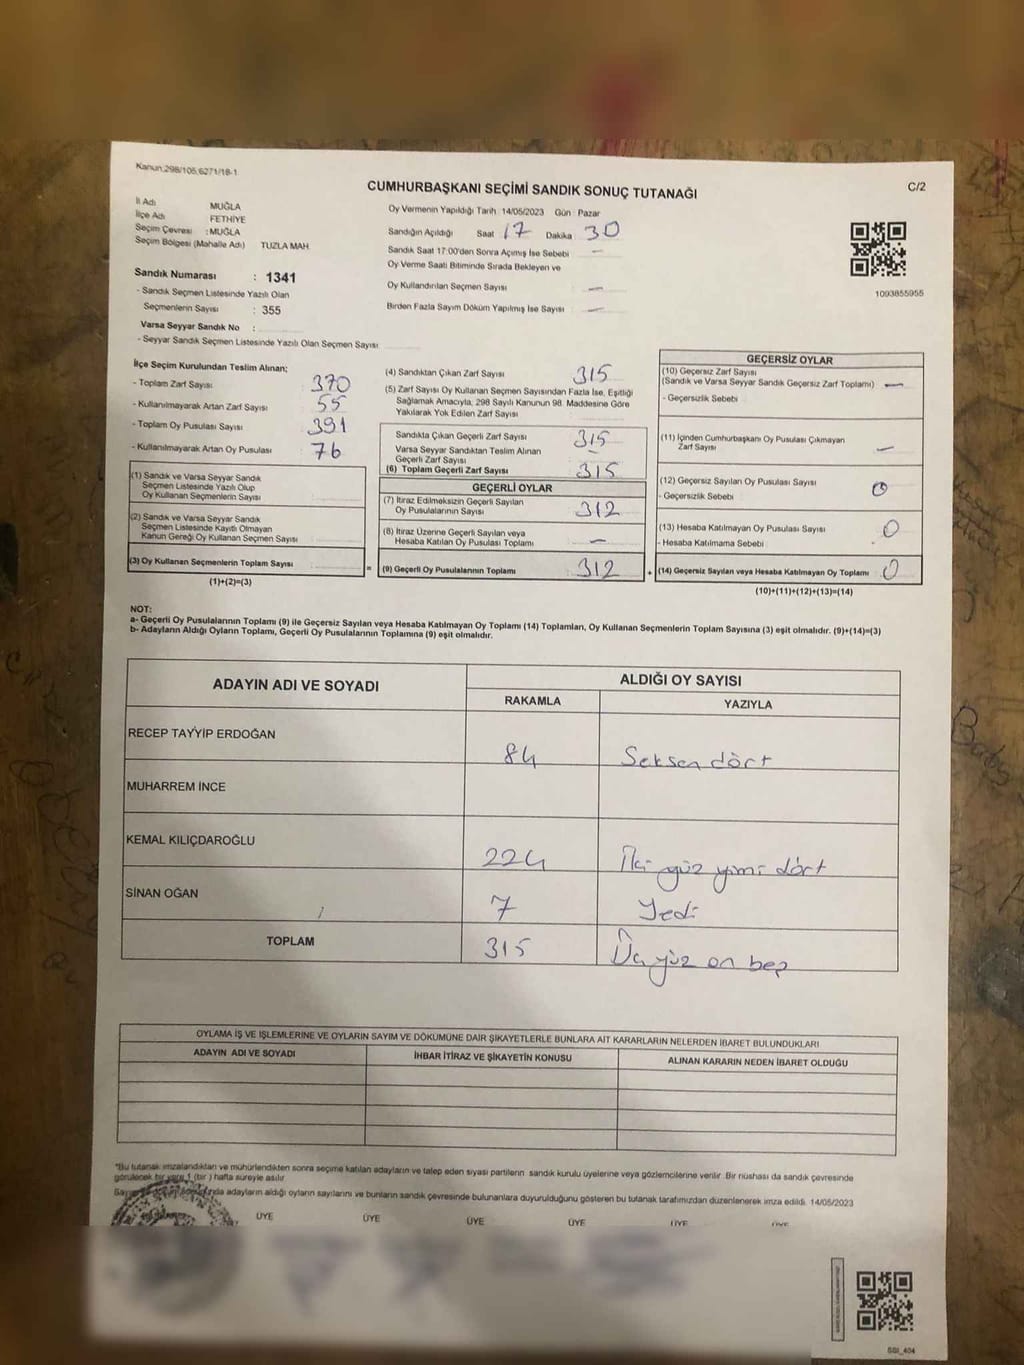 Kanun:298/105,6271/18-1
CUMHURBAŞKANI SEÇİMİ SANDIK SONUÇ TUTANAĞI
C/2
İl Adı MUĞLA
İlçe Adı FETHİYE
Seçim Çevresi : MUĞLA
Seçim Bölgesi (Mahalle Adı) TUZLA MAH.
Oy Vermenin Yapıldığı Tarih 14/05/2023 Gün : Pazar
Sandığın Açıldığı Saat 17 Dakika 30
Sandık Saat 17:00'den Sonra Açmış İse Sebebi —
Oy Verme Saati Bitiminde Sırada Bekleyen ve
Oy Kullandırılan Seçmen Sayısı —
Birden Fazla Sayım Döküm Yapılmış İse Sayısı —
1093855955
Sandık Numarası : 1341
- Sandık Seçmen Listesinde Yazılı Olan
Seçmenlerin Sayısı : 355
Varsa Seyyar Sandık No :
- Seyyar Sandık Seçmen Listesinde Yazılı Olan Seçmen Sayısı
İlçe Seçim Kurulundan Teslim Alınan;
- Toplam Zarf Sayısı 370
- Kullanılmayarak Artan Zarf Sayısı 55
- Toplam Oy Pusulası Sayısı 391
- Kullanılmayarak Artan Oy Pusulası 76
(1) Sandık ve Varsa Seyyar Sandık
Seçmen Listesinde Yazılı Olup
Oy Kullanan Seçmenlerin Sayısı
(2) Sandık ve Varsa Seyyar Sandık
Seçmen Listesinde Kayıtlı Olmayan
Kanun Gereği Oy Kullanan Seçmen Sayısı
(3) Oy Kullanan Seçmenlerin Toplam Sayısı
(1)+(2)=(3)
=
(4) Sandıktan Çıkan Zarf Sayısı 315
(5) Zarf Sayısı Oy Kullanan Seçmen Sayısından Fazla İse, Eşitliği
Sağlamak Amacıyla, 298 Sayılı Kanunun 98. Maddesine Göre
Yakılarak Yok Edilen Zarf Sayısı
Sandıkta Çıkan Geçerli Zarf Sayısı 315
Varsa Seyyar Sandıktan Teslim Alınan
Geçerli Zarf Sayısı —
(6) Toplam Geçerli Zarf Sayısı 315
GEÇERLİ OYLAR
(7) İtiraz Edilmeksizin Geçerli Sayılan
Oy Pusulalarının Sayısı 312
(8) İtiraz Üzerine Geçerli Sayılan veya
Hesaba Katılan Oy Pusulası Toplamı —
(9) Geçerli Oy Pusulalarının Toplamı 312
+
GEÇERSİZ OYLAR
(10) Geçersiz Zarf Sayısı
(Sandık ve Varsa Seyyar Sandık Geçersiz Zarf Toplamı) —
- Geçersizlik Sebebi
(11) İçinden Cumhurbaşkanı Oy Pusulası Çıkmayan
Zarf Sayısı —
(12) Geçersiz Sayılan Oy Pusulası Sayısı 0
- Geçersizlik Sebebi
(13) Hesaba Katılmayan Oy Pusulası Sayısı 0
- Hesaba Katılmama Sebebi
(14) Geçersiz Sayılan veya Hesaba Katılmayan Oy Toplamı 0
(10)+(11)+(12)+(13)=(14)
NOT:
a- Geçerli Oy Pusulalarının Toplamı (9) ile Geçersiz Sayılan veya Hesaba Katılmayan Oy Toplamı (14) Toplamları, Oy Kullanan Seçmenlerin Toplam Sayısına (3) eşit olmalıdır. (9)+(14)=(3)
b- Adayların Aldığı Oyların Toplamı, Geçerli Oy Pusulalarının Toplamına (9) eşit olmalıdır.
ADAYIN ADI VE SOYADI
ALDIĞI OY SAYISI
RAKAMLA YAZIYLA
RECEP TAYYİP ERDOĞAN 84 Seksen dört
MUHARREM İNCE
KEMAL KILIÇDAROĞLU 224 İki yüz yirmi dört
SİNAN OĞAN 7 Yedi
TOPLAM 315 Üç yüz on beş
OYLAMA İŞ VE İŞLEMLERİNE VE OYLARIN SAYIM VE DÖKÜMÜNE DAİR ŞİKAYETLERLE BUNLARA AİT KARARLARIN NELERDEN İBARET BULUNDUKLARI
ADAYIN ADI VE SOYADI İHBAR İTİRAZ VE ŞİKAYETİN KONUSU ALINAN KARARIN NEDEN İBARET OLDUĞU
*Bu tutanak imzalandıktan ve mühürlendikten sonra seçime katılan adayların ve talep eden siyasi partilerin sandık kurulu üyelerine veya gözlemcilerine verilir. Bir nüshası da sandık çevresinde
görülecek bir yere 1 (bir) hafta süreyle asılır.
adayların aldığı oyların sayılarını ve bunların sandık çevresinde bulunanlara duyurulduğunu gösteren bu tutanak tarafımızdan düzenlenerek imza edildi. 14/05/2023
ÜYE ÜYE ÜYE ÜYE ÜYE ÜYE
SSI_404